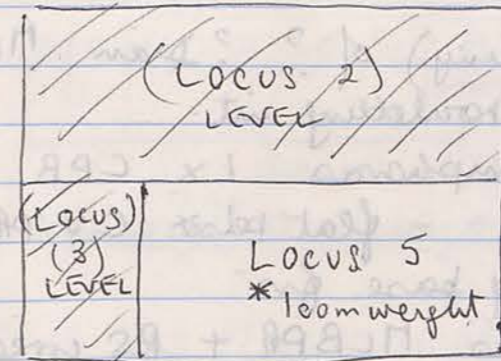 (LOCUS 2)
LEVEL
(LOCUS)
(3)
LEVEL
LOCUS 5
* loomweight